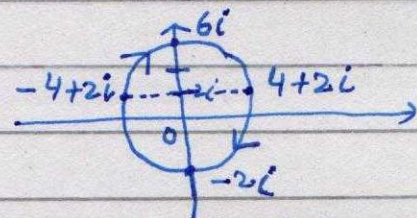 6i
-4+2i 2i 4+2i
0
-2i